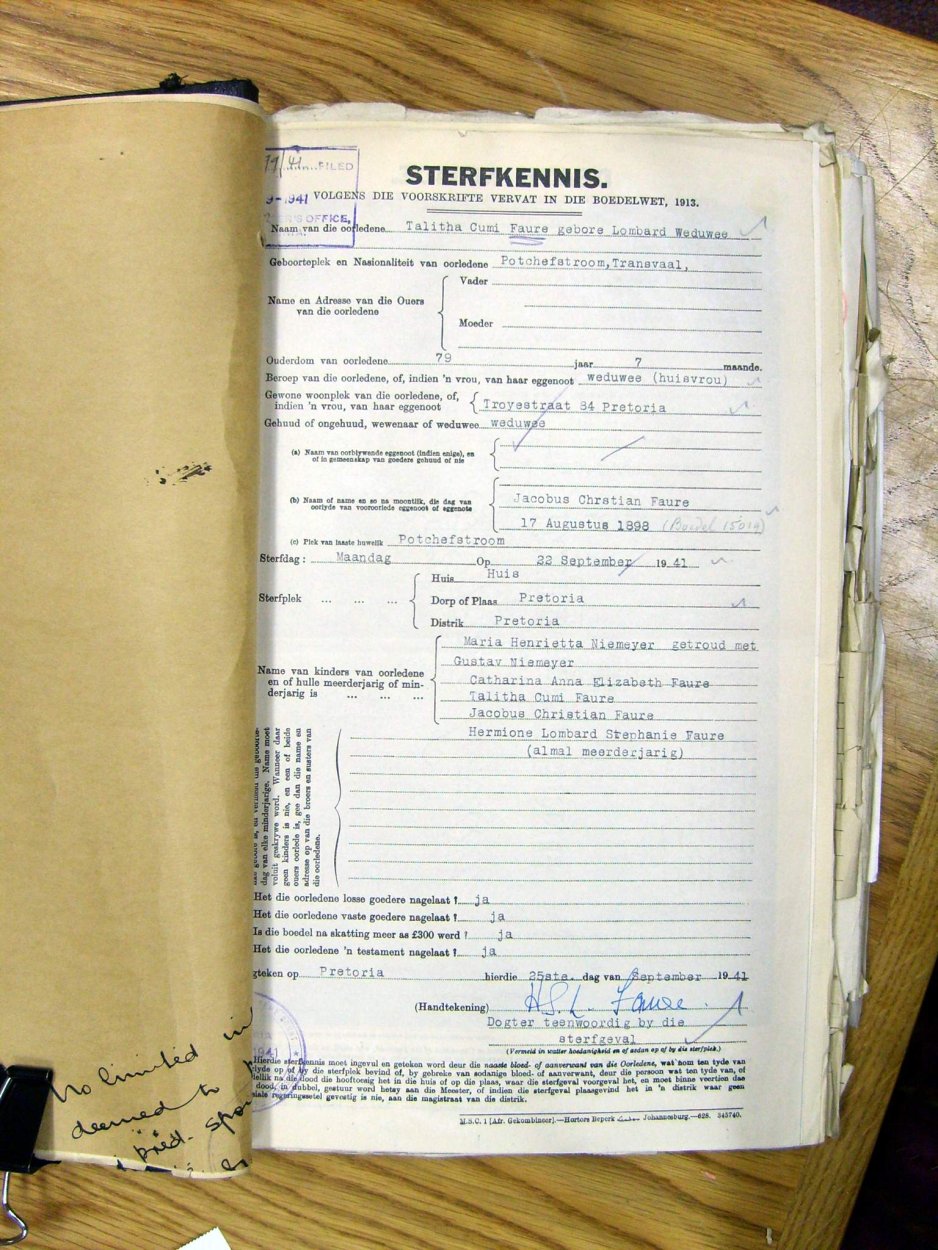 41 FILED
9-1941
STERFKENNIS.
VOLGENS DIE VOORSKRIFTE VERVAT IN DIE BOEDELWET, 1913.
OFFICE,
Naam van die oorledene Talitha Cumi Faure gebore Lombard Weduwee
Geboorteplek en Nasionaliteit van oorledene Potchefstroom,Transvaal,
Name en Adresse van die Ouers van die oorledene
Vader
Moeder
Ouderdom van oorledene 79 jaar 7 maande.
Beroep van die oorledene, of, indien 'n vrou, van haar eggenoot weduwee (huisvrou)
Gewone woonplek van die oorledene, of, indien 'n vrou, van haar eggenoot Troyestraat 84 Pretoria
Gehuud of ongehuud, wewenaar of weduwee weduwee
(a) Naam van oorblywende eggenoot (indien enige), en of in gemeenskap van goedere gehuud of nie
(b) Naam of name en so na moontlik, die dag van oorlyde van vooroorlede eggenoot of eggenote
Jacobus Chrstian Faure
17 Augustus 1898 (Boedel 15014)
(c) Plek van laaste huwelik Potchefstroom
Sterfdag: Maandag Op 22 September 1941
Sterfplek ... ... ...
Huis Huis
Dorp of Plaas Pretoria
Distrik Pretoria
Name van kinders van oorledene en of hulle meerderjarig of minderjarig is ... ... ...
Maria Henrietta Niemeyer getroud met
Gustav Niemeyer
Catharina Anna Elizabeth Faure
Talitha Cumi Faure
Jacobus Christian Faure
Hermione Lombard Stephanie Faure
(almal meerderjarig)
dag van elke minderjarige. Name moet
voluit geskrywe word. Wanneer daar
geen kinders is nie, en een of beide
ouers oorlede is, gee dan die name en
adresse op van die broers en susters van
die oorledene.
Het die oorledene losse goedere nagelaat? ja
Het die oorledene vaste goedere nagelaat? ja
Is die boedel na skatting meer as £300 werd? ja
Het die oorledene 'n testament nagelaat? ja
gteken op Pretoria hierdie 25ste. dag van September 1941
(Handtekening) H.S.L. Faure.
Dogter teenwoordig by die
sterfgeval
(Vermeld in watter hoedanigheid en of sedan op of by die sterfplek.)
1941
Hierdie sterfkennis moet ingevul en geteken word deur die naaste bloed- of aanverwant van die Oorledene, wat nom ten tyde van
rlyde op of by die sterfplek bevind of, by gebreke van sodanige bloed- of aanverwant, deur die persoon wat ten tyde van, of
dellik na die dood die hooftoesig het in die huis of op die plaas, waar die sterfgeval voorgeval het, en moet binne veertien dae
dood, in dubbel, gestuur word hetsy aan die Meester, of indien die sterfgeval plaasgevind het in 'n distrik waar geen
siale regeringssetel gevestig is nie, aan die magistraat van die distrik.
M.S.C. 1 [Afr. Gekombineer].—Hortors Beperk Johannesburg.—628. 345740.
No limited in
deemed to
pred. spou